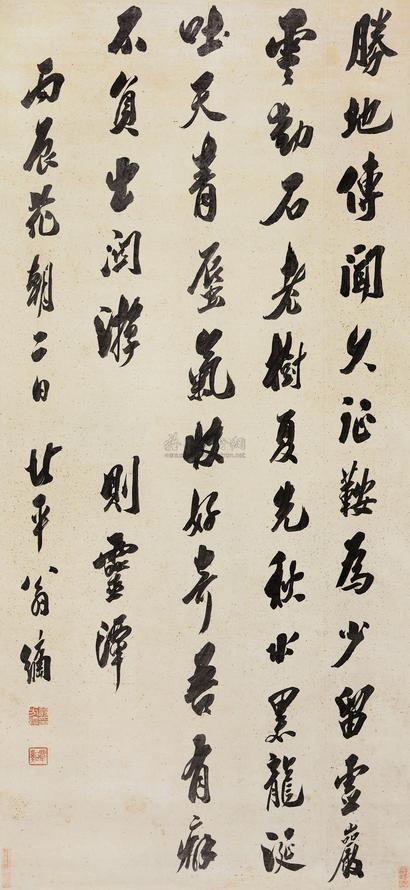 勝地傳聞久征鞍為少留靈巖
雲動石老樹夏先秋水黑龍涎
吐天青蜃氣收好奇吾有癖
不負出關遊 則靈潭
丙辰花朝二日 北平翁方綱